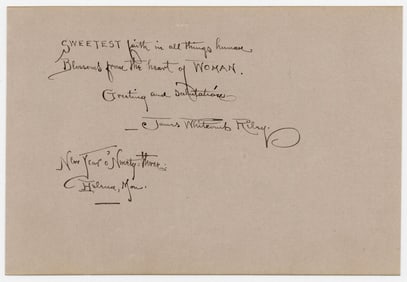 SWEETEST faith in all things human
Blossoms from the heart of WOMAN.
Greeting and salutation
— James Whitcomb Riley
New Year o' Ninety-three.
Helena, Mon.